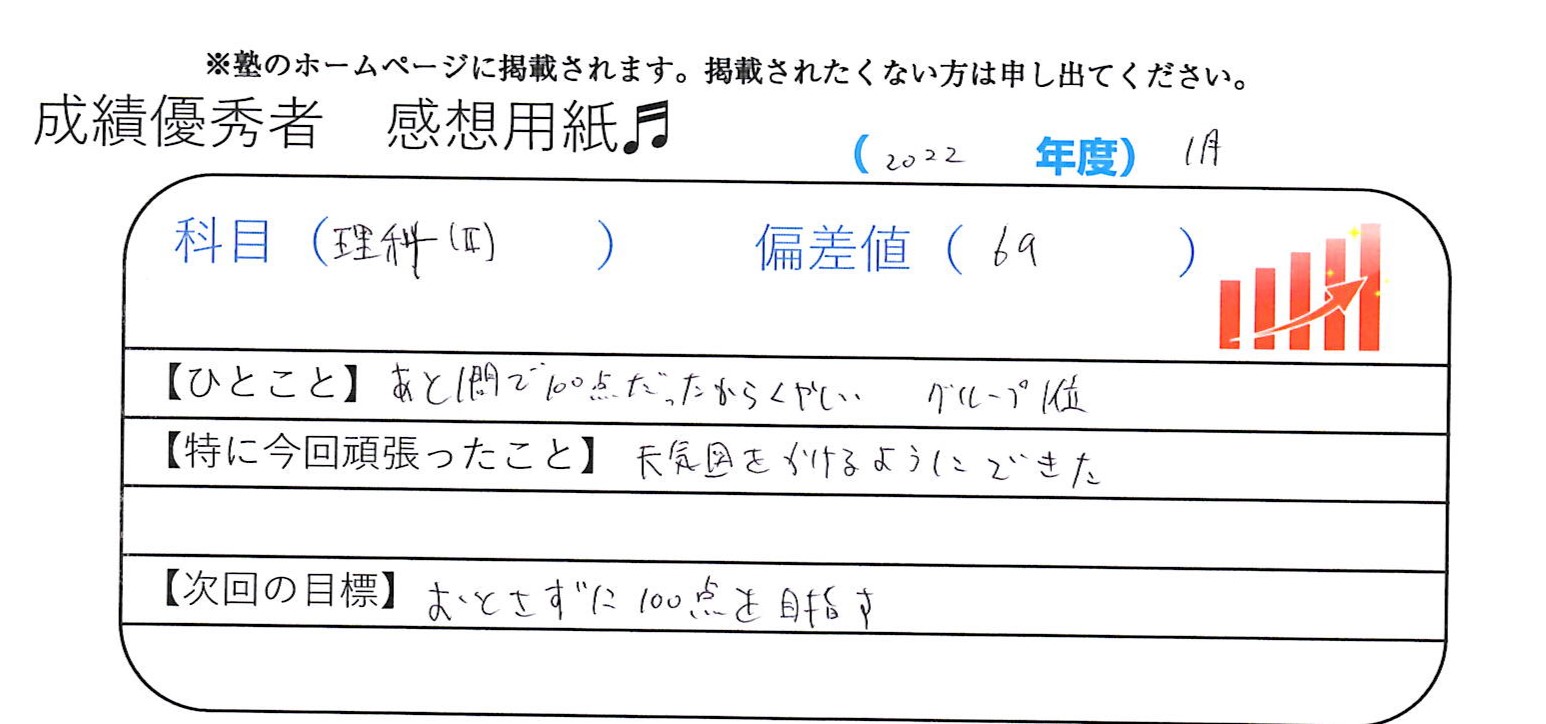 ※塾のホームページに掲載されます。掲載されたくない方は申し出てください。
成績優秀者　感想用紙♬
（2022　年度）1月
科目（理科(Ⅱ)　）　偏差値（69　）
【ひとこと】あと1問で100点だったからくやしい　グループ1位
【特に今回頑張ったこと】天気図をかけるようにできた
【次回の目標】おとさずに100点を目指す